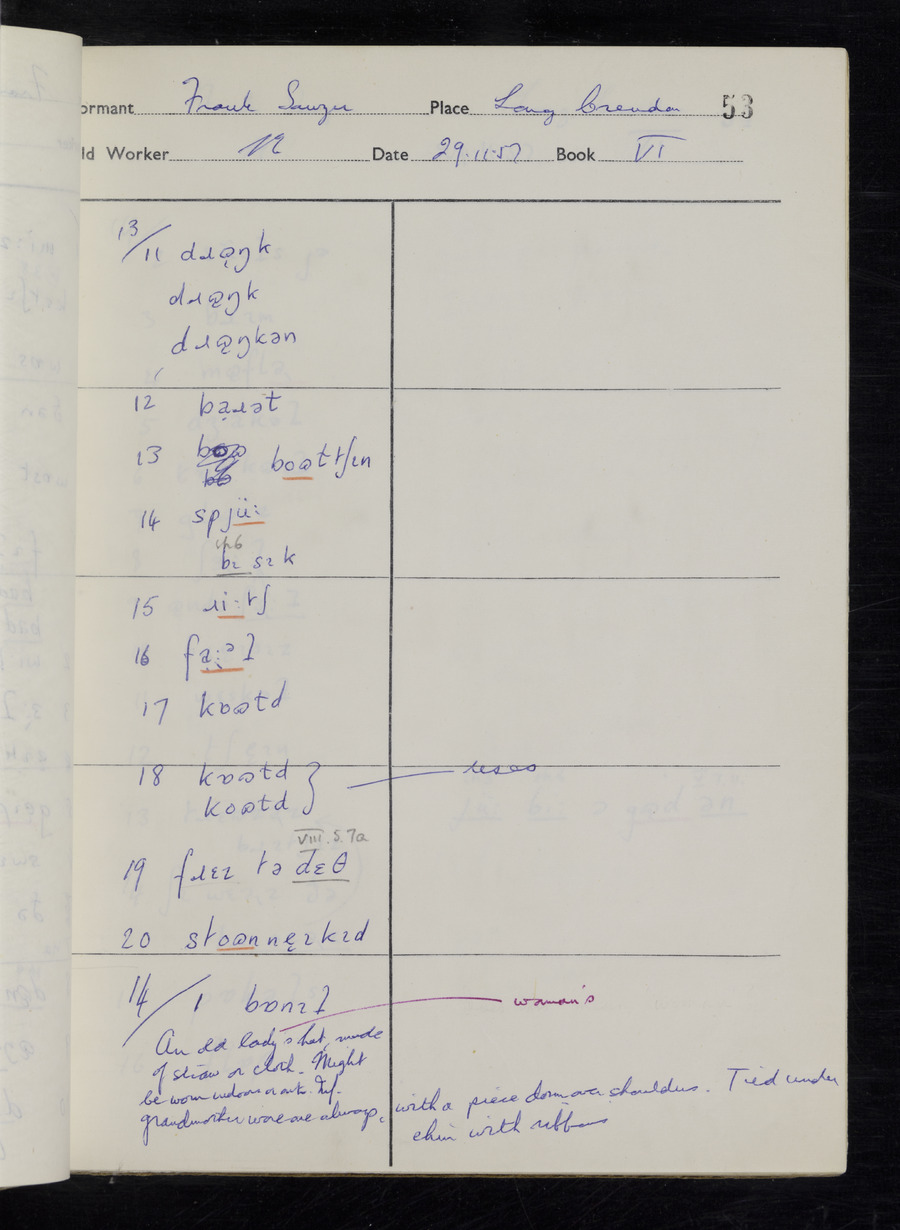 ormant Frank Sawyer Place Long Crendon 53
ld Worker N Date 29.11.57 Book VI
13/11 dɹə̣ŋk
dɹæ̣ŋk
dɹæ̣ŋkən
12 bạɹət
13 boəttʃɪn
14 spjüː
VI.6
bɪ sɪk
15 ɹiːtʃ
16 fạːəl
17 kɒətd
18 kɒətd
koətd } uses
VIII.5.7a
19 fɹɛɪ tə dɛθ
20 stoənnẹɪkɪd
14/1 bɒnɪt
An old lady's hat, made woman's
of straw or cloth. Might
be worn indoors or out. Inf.
grandmother wore one always, with a piece down over shoulders. Tied under
chin with ribbons